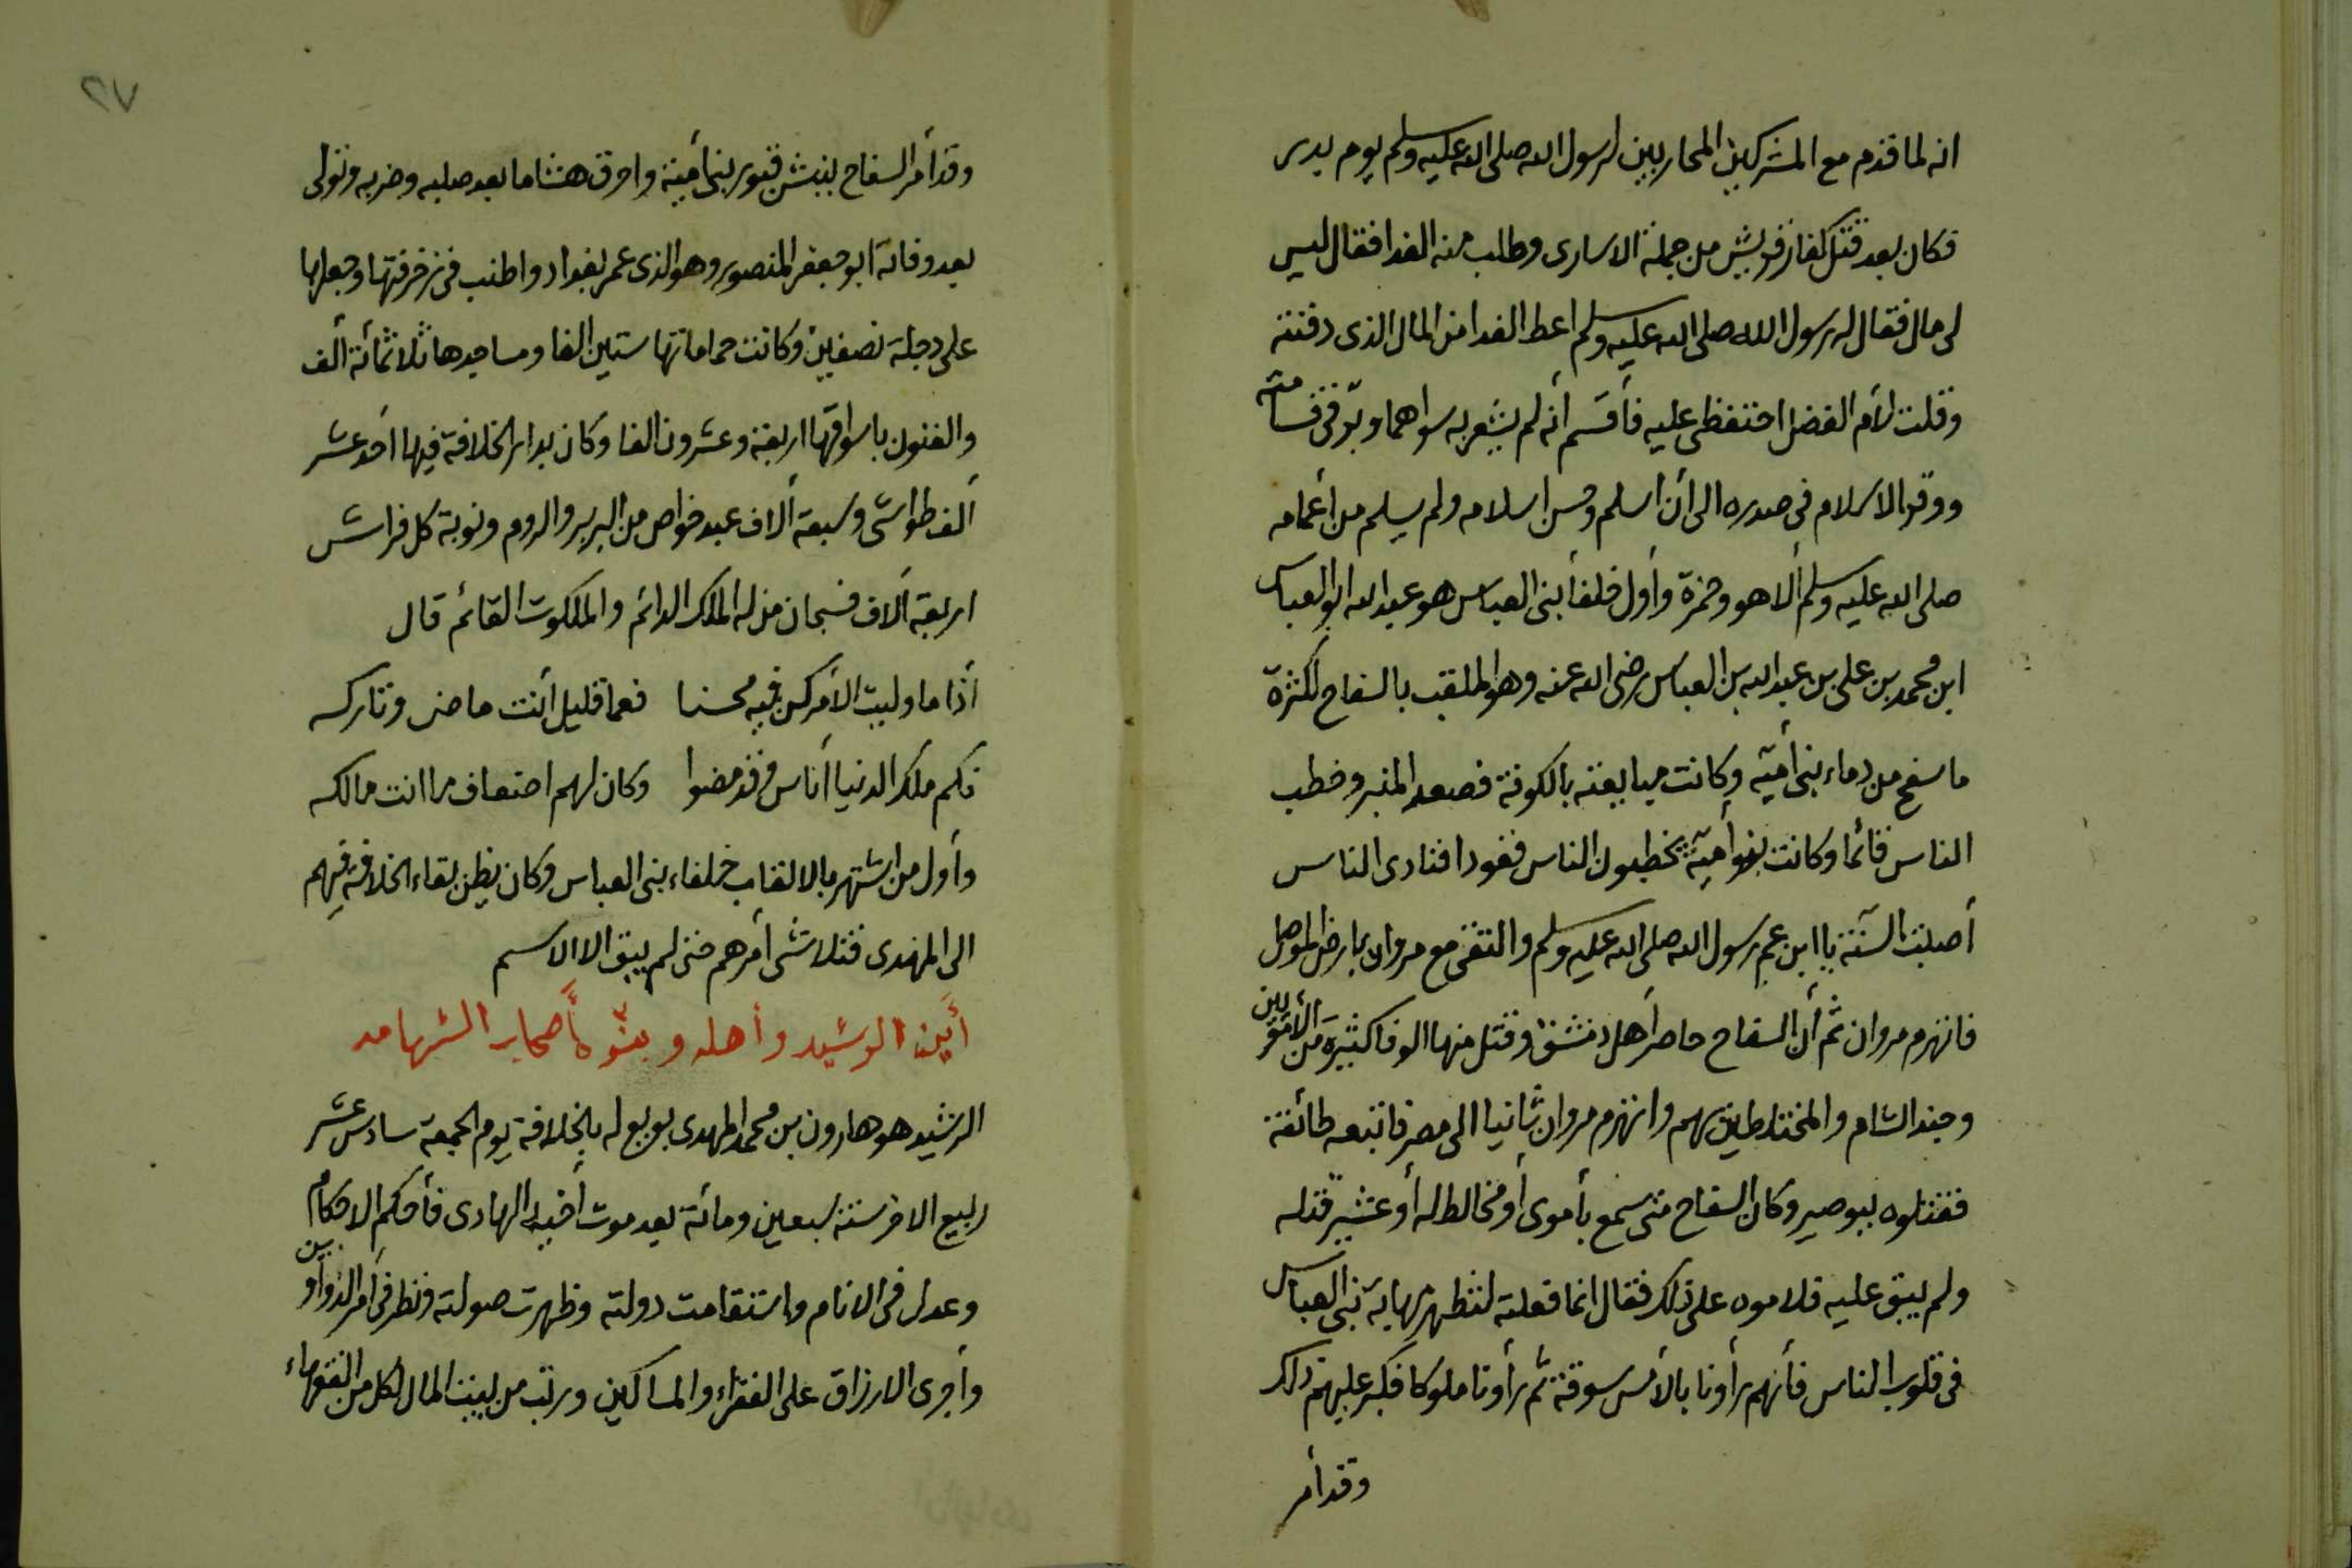 انه لما قدم مع المشركين المحاربين لرسول الله صلى الله عليه وسلم يوم بدر
فكان بعد قتل كفار قريش من جملة الاسارى وطلب منه الفدا فقال ليس
لى مال فقال له رسول الله صلى الله عليه وسلم اعط الفدا من المال الذى دفنته
وقلت لأم الفضل احتفظى عليه فأقسم أنه لم يشعر به سواهما وبرّ فى قسامته
ووقر الاسلام فى صدره الى أن اسلم وحسن اسلامه ولم يسلم من أعمامه
صلى الله عليه وسلم ألا هو وحمزة وأول خلفأ بنى العباس هو عبد الله ابو العباس
ابن محمد بن على بن عبد الله بن العباس رضى الله عنه وهو الملقب بالسفاح لكثرة
ما سفح من دماء بنى أميّه وكانت مبايعته بالكوفة فصعد المنبر وخطب
الناس قائما وكانت بنو أميّة يخطبون الناس قعودا فنادى الناس
أصبت السنّة يا ابن عم رسول الله صلى الله عليه وسلم والتقى مع مروان بارض الموصل
فانهزم مروان ثم أن السفاح حاصر أهل دمشق وقتل منها الوفا كثيرة من الأمويين
وجند الشام والمختلطين بهم وانهزم مروان ثانيا الى مصر فاتبعه طائفة
فقتلوه ببوصير وكان السفاح متى سمع بأموى أو مخالط له أو عشير قتله
ولم يبق عليه فلاموه على ذلك فقال انما فعلته لتظهر مهابة بنى العباس
فى قلوب الناس فأنهم رأونا بالأمس سوقة ثم رأونا ملوكا فكبر عليهم ذلك
وقد أمر
٢٧
وقد أمر السفاح بنبش قبور بنى أميّة واحرق هشاما بعد صلبه وضربه وتولى
بعد وفاته ابو جعفر المنصور وهو الذى عمر بغداد واطنب فى زخرفتها وجعلها
على دجلة نصفين وكانت حماماتها ستين الفا ومساجدها ثلاثمائة ألف
والفنون باسواقها اربعة وعشرون الفا وكان بدار الخلافة فيها أحد عشر
ألف طواشى وسبعة ألاف عبد خواص من البربر والروم ونوبة كل فراش
اربعة ألاف فسبحان من له الملك الدائم والملكوت القائم قال
أذا ما وليت الأمر كن فيه محسنا فعما قليل أنت ماض وتاركه
فكم ملك الدنيا أناس وقد مضوا وكان لهم اضعاف ما انت مالكه
وأول من اشتهر بالالقاب خلفاء بنى العباس وكان يظن بقاء الخلافة فيهم
الى المهدى فتلاشى أمرهم حتى لم يبق الا الاسم
أين الرشيد وأهله وبنوه أصحاب الشهامه
الرشيد هو هارون بن محمد المهدى بويع له بالخلافة يوم الجمعة سادس عشر
ربيع الاخر سنة سبعين ومائة بعد موت أخيه الهادى فأحكم الاحكام
وعدل فى الانام واستقامت دولته وظهرت صولته ونظر فى أمر الدواوين
وأجرى الارزاق على الفقراء والمساكين ورتب من بيت المال لكل من الفقهاء